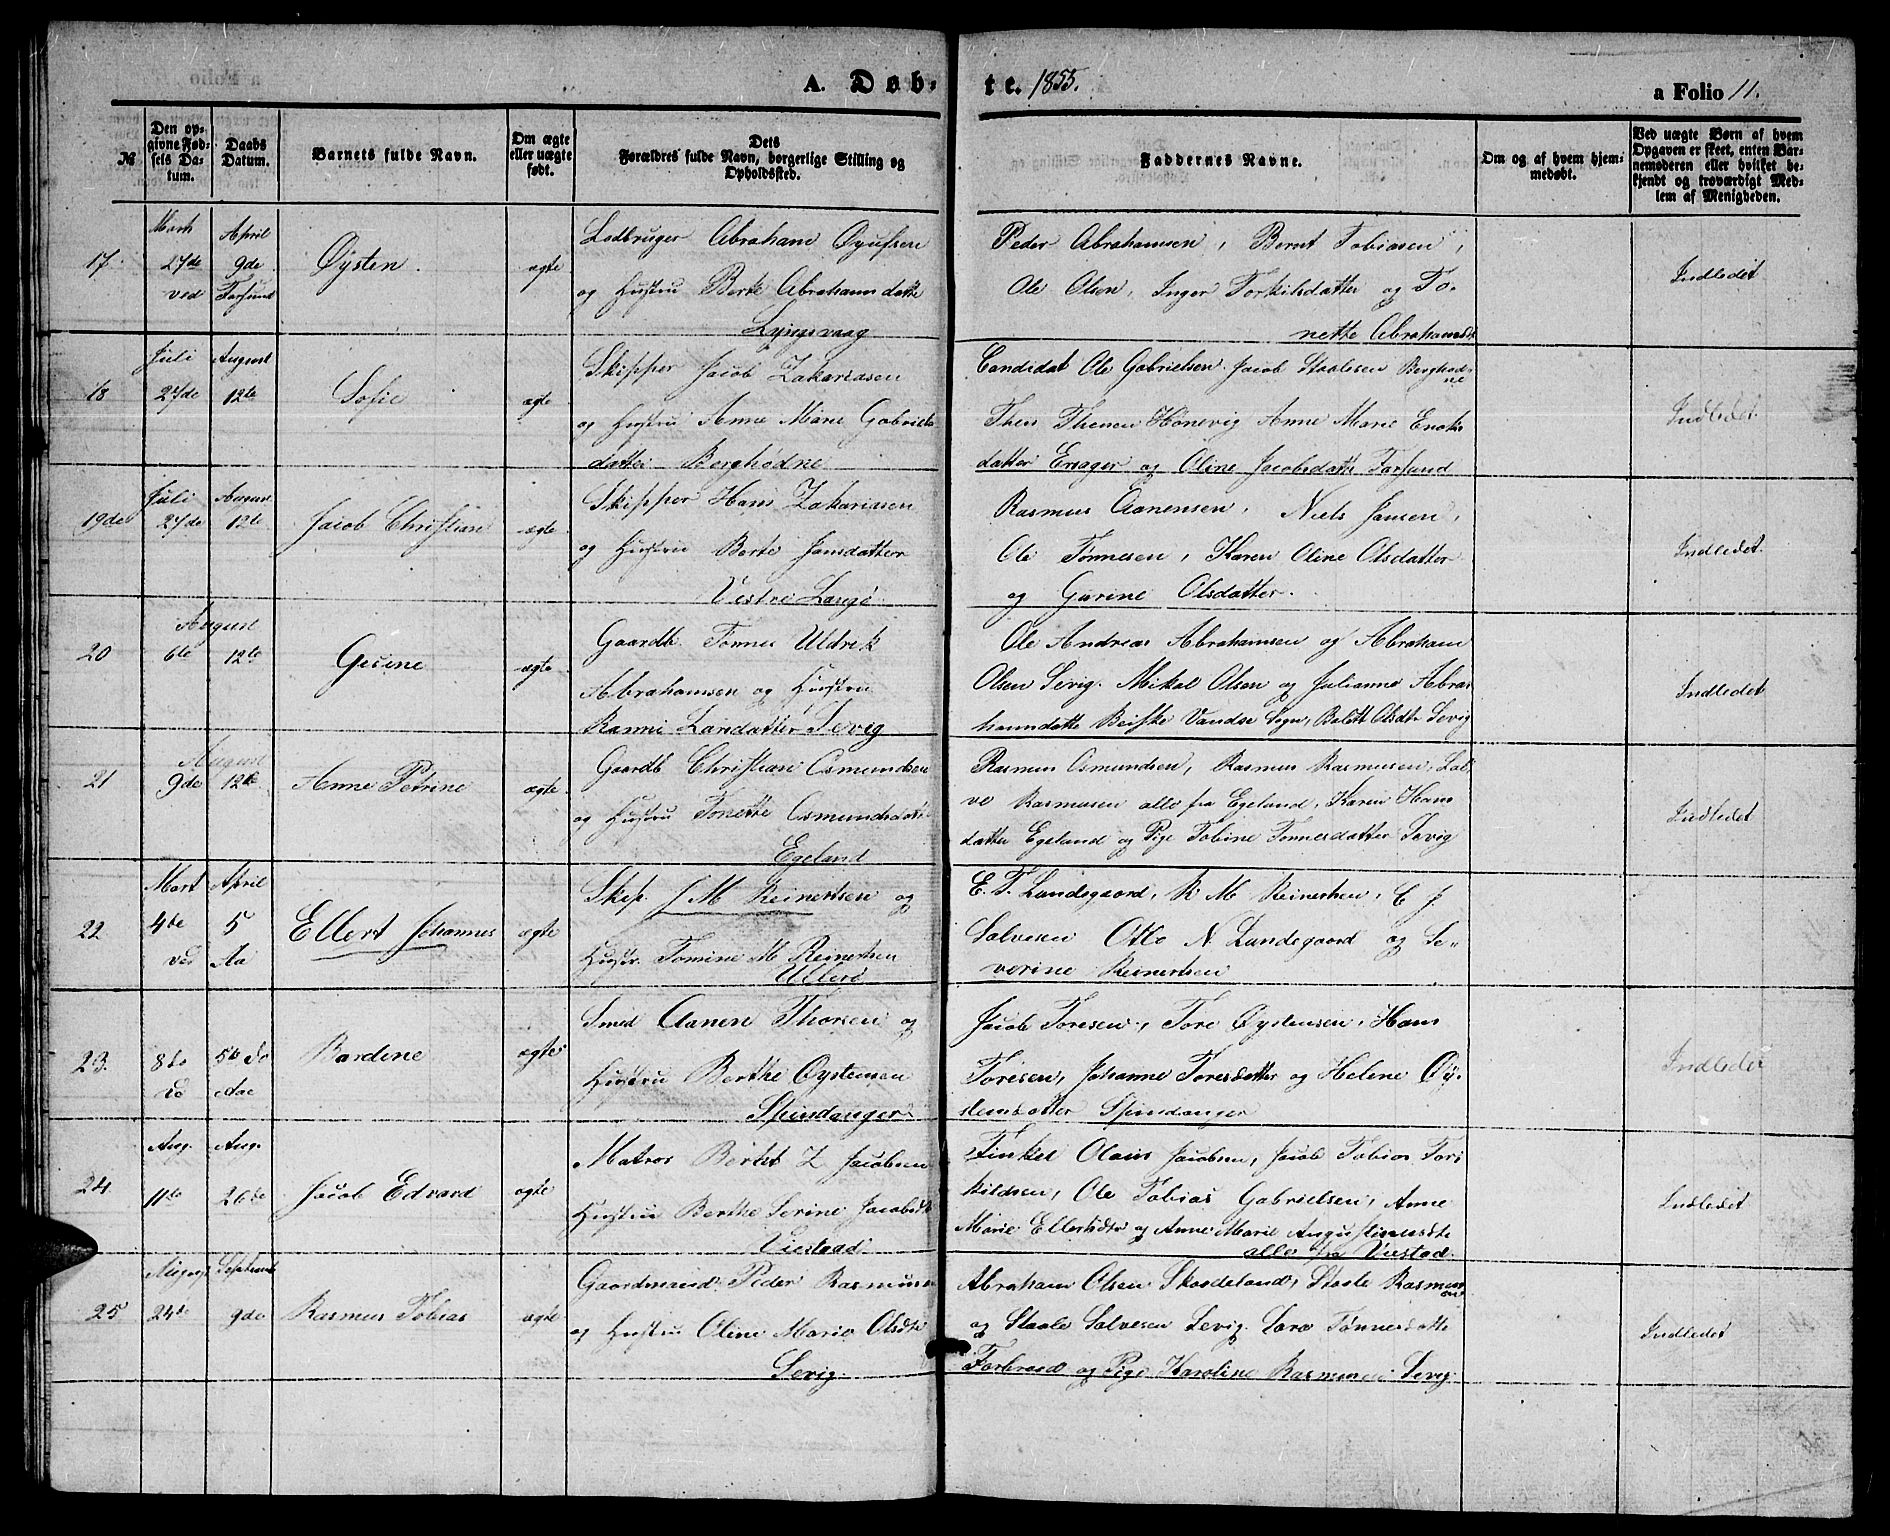 A. Døb-
te. 1855.
a Folio 11.
№
Den op-
givne Fød-
sels Da-
tum.
Daabs
Datum.
Barnets fulde Navn.
Om ægte
eller uægte
født.
Dets
Forældres fulde Navn, borgerlige Stilling og
Opholdssted.
Faddernes Navne.
Om og af hvem hjem-
medøbt.
Ved uægte Børn af hvem
Opgaven er skeet, enten Bar-
nemoderen eller hvilket be-
kjendt og troværdigt Med-
lem af Menigheden.
17
27de
ved
April
9de
Farsund
Øysten.
ægte
Abraham
og Hustru Berte Abrahamsdatter
Lyngsvaag
Peder Abrahamsen, Bernt Tobiasen,
Ole Olsen, Inger Torkilsdatter og To-
nette Abrahamsdt
Indledet
18
Juli
27de
August
12te
Sofie
ægte
Skipper Jacob Zakariasen
og Hustru Anne Marie Gabriels
datter Berghødne
Candidat Ole Gabrielsen. Jacob Staalesen Berghød-
ne
Anne Marie
datter og Oline Jacobsdatt Farsund
Indledet
19de
Juli
27de
August
12te
Jacob Christian
ægte
Skipper Hans Zakariasen
og Hustru Berte Jansdatter
Vestre Langø
Rasmus Aanensen, Niels Jansen,
Ole Tønnesen, Karen Oline Olsdatter
og Gurine Olsdatter.
Indledet.
20
August
6te
12te
Gesine
ægte
Gaardb. Tønnes Uldrik
Abrahamsen og Hustru
Larsdatter Sevig
Ole Andreas Abrahamsen og Abraham
Olsen Sevig. Mikal Olsen og Julianne Abra
hamsdatte Vandse Sogn, Olsdtr Sevig
Indledet
21
August
9de
12te
Anne Petrine
ægte
Gaardb Christian Osmundsen
og Hustru Tonette Osmundsdatt
Egeland
Rasmus Osmundsen, Rasmus Rasmussen, Sal
ve Rasmusen alle fra Egeland, Karen Hans
datter Egeland og Pige Tobine Tønnesdatter Sevig
Indledet
22
Mart
4de
ved
April
5
Aa
Ellert Johannes
ægte
Skip. J M Reinertsen og
Hustr. Tomine M Reinertsen
Ullerø
E. T. Lundegaard, R M Reinertsen, C J.
Salvesen Otto N. Lundegaard og Se-
verine Reinertsen
23.
8de
do
5te do
Aae
Bardine
ægte
Smed Aanen Thorsen og
Hustru Berthe Oystensen
Spindanger
Jacob Toresen, Tore Øystensen, Hans
Toresen, Johanne Toresdatter og Helene Øy-
stensdatter Spindanger
Indledet
24
Aug.
11te
Aug.
26de
Jacob Edvard
ægte
Matros Z Jacobsen
Hustru Berthe Serine Jacobsdt
Viestaad
Olaus Jacobsen, Jacob Tobias Tor
kildsen, Ole Tobias Gabrielsen, Anne
Marie Ellertsdtr og Anne Marie Augustinusdtr
alle fra Viestad.
Indledet
25
August
24de
Septembr
9de
Rasmus Tobias
ægte
Gaardmand Peder Rasmusen
og Hustru Oline Marie Olsdtr
Sevig.
Abraham Olsen Skaadeland, Staale Rasmus
sen
og Staale Salvesen Sevig. Tønnesdatte
og Pige Karoline Sevig
Indledet